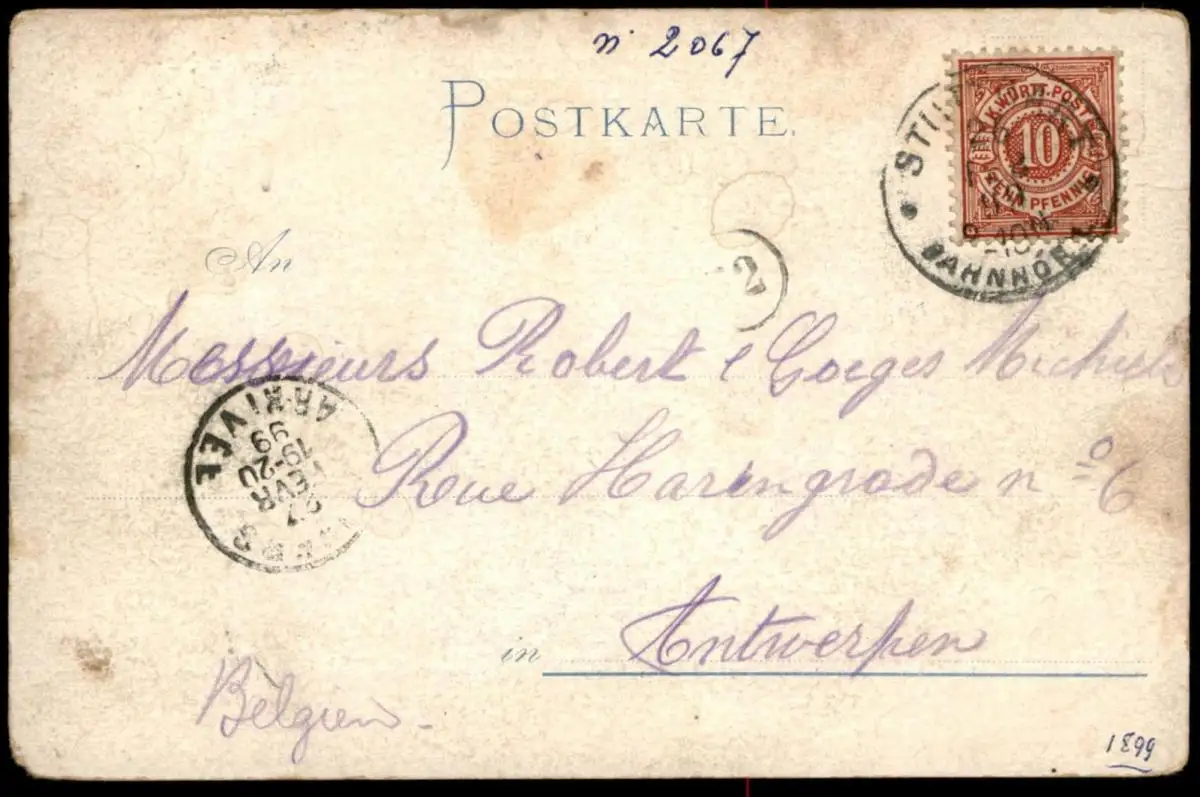 n 2067
POSTKARTE.
K. WÜRTT. POST
10
ZEHN PFENNIG
BAHNHOF
An
2
Messieurs Robert & Goeges Michiels
ARRIVEE
99
19-20
FEVR
27
Rue Harengrode n° 6
in Antwerpen
Belgien -
1899